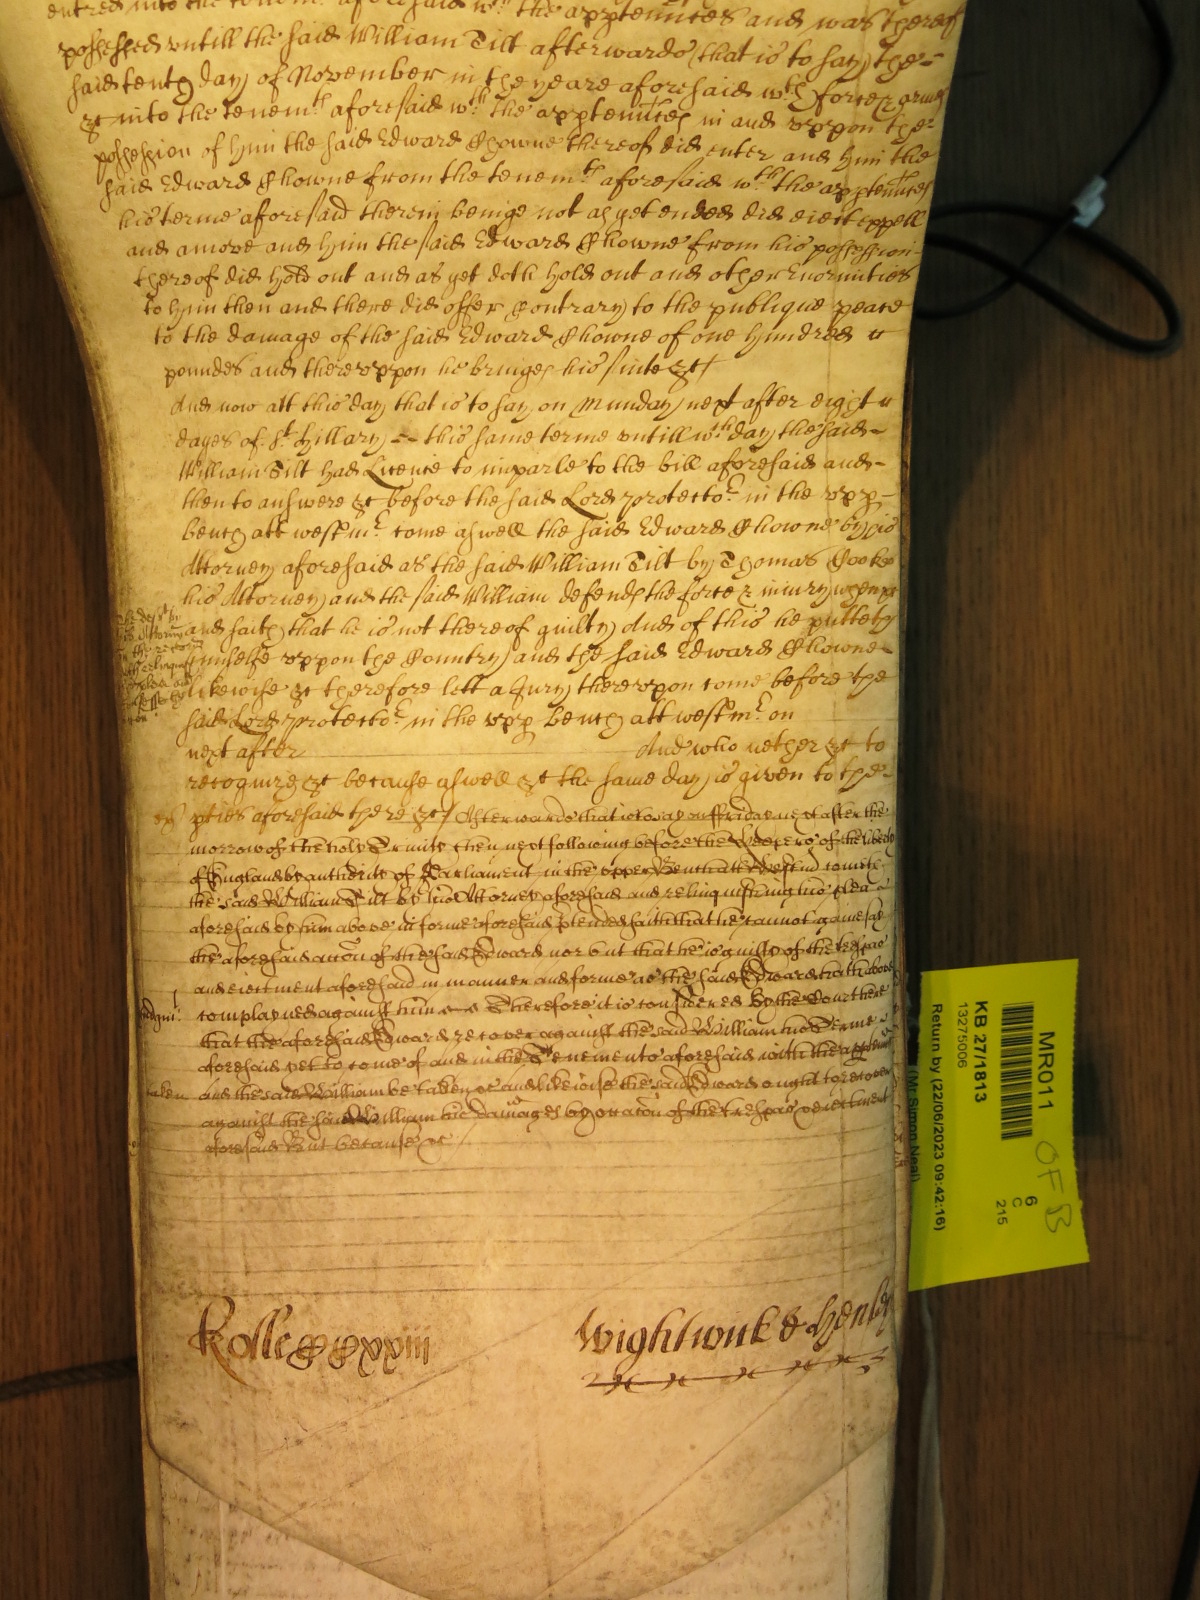 entred into the tenemt aforesaid wth the apptennces and was thereof
possessed untill the said William Tilt afterwards (that is to say) the
said tenth day of November in the yeare aforesaid wth force & armes
&c into the tenemt aforesaid wth the apptenncs in and uppon the
possession of him the said Edward Chowne thereof did enter and him the
said Edward Chowne from the tenemts aforesaid wth the apptenncs
his terme aforesaid therein beinge not as yet ended did eiect expell
and amove and him the said Edward Chowne from his possession
thereof did hold out and as yet doth hold out and other Enormities
to him then and there did offer Contrary to the publique peace
to the damage of the said Edward Chowne of one hundred
poundes and thereuppon he bringes his suite &c
And now att this day that is to say on Munday next after eight
dayes of St Hillary this same terme untill wch day the said
William Tilt had Licence to imparle to the bill aforesaid and
then to answere &c before the said Lord Protector in the upp
bench att westmr come aswell the said Edward Chowne by his
Attorney aforesaid as the said William Tilt by Thomas Cooke
his Attorney and the said William defends the force & iniury when &c
and saith that he is not thereof guilty And of this he putteth
himselfe uppon the Country and the said Edward Chowne
likewise &c therefore lett a Jury thereupon come before the
said Lord Protector in the upp bench att westmr on
next after And who nether &c to
recognize &c because aswell &c the same day is given to the
pties aforesaid there &c Afterwards that is to say on Friday next after the
morrow of the holy Trinity then next following before the Keepers of the liberty
of England by authority of Parliament in the upper Bench att Westmr cometh
the said William Tilt by his Attorney aforesaid and relinquishing his plea
aforesaid by him above in forme aforesaid pleaded saith that he cannot gainesay
the aforesaid accon of the said Edward nor but that he is guilty of the trespas
and eiectment aforesaid in manner and forme as the said Edward hath above
complayned against him Therefore it is considered by the Court here
Judgmt
that the aforesaid Edward recover against the said William his Terme
aforesaid yet to come of and in the Tenements aforesaid with the apptennces
taken and the said William be taken &c and likewise the said Edward ought to recover
against the said William his damages by occacon of the trespas & eiectment
aforesaid But because &c
Rolle CCxxiii Wightwick & Henley
MR011
KB 27/1813
13275006
Return by (22/06/2023 09:42:16)
(Mr Simon Neal)
6
C
215
OF B